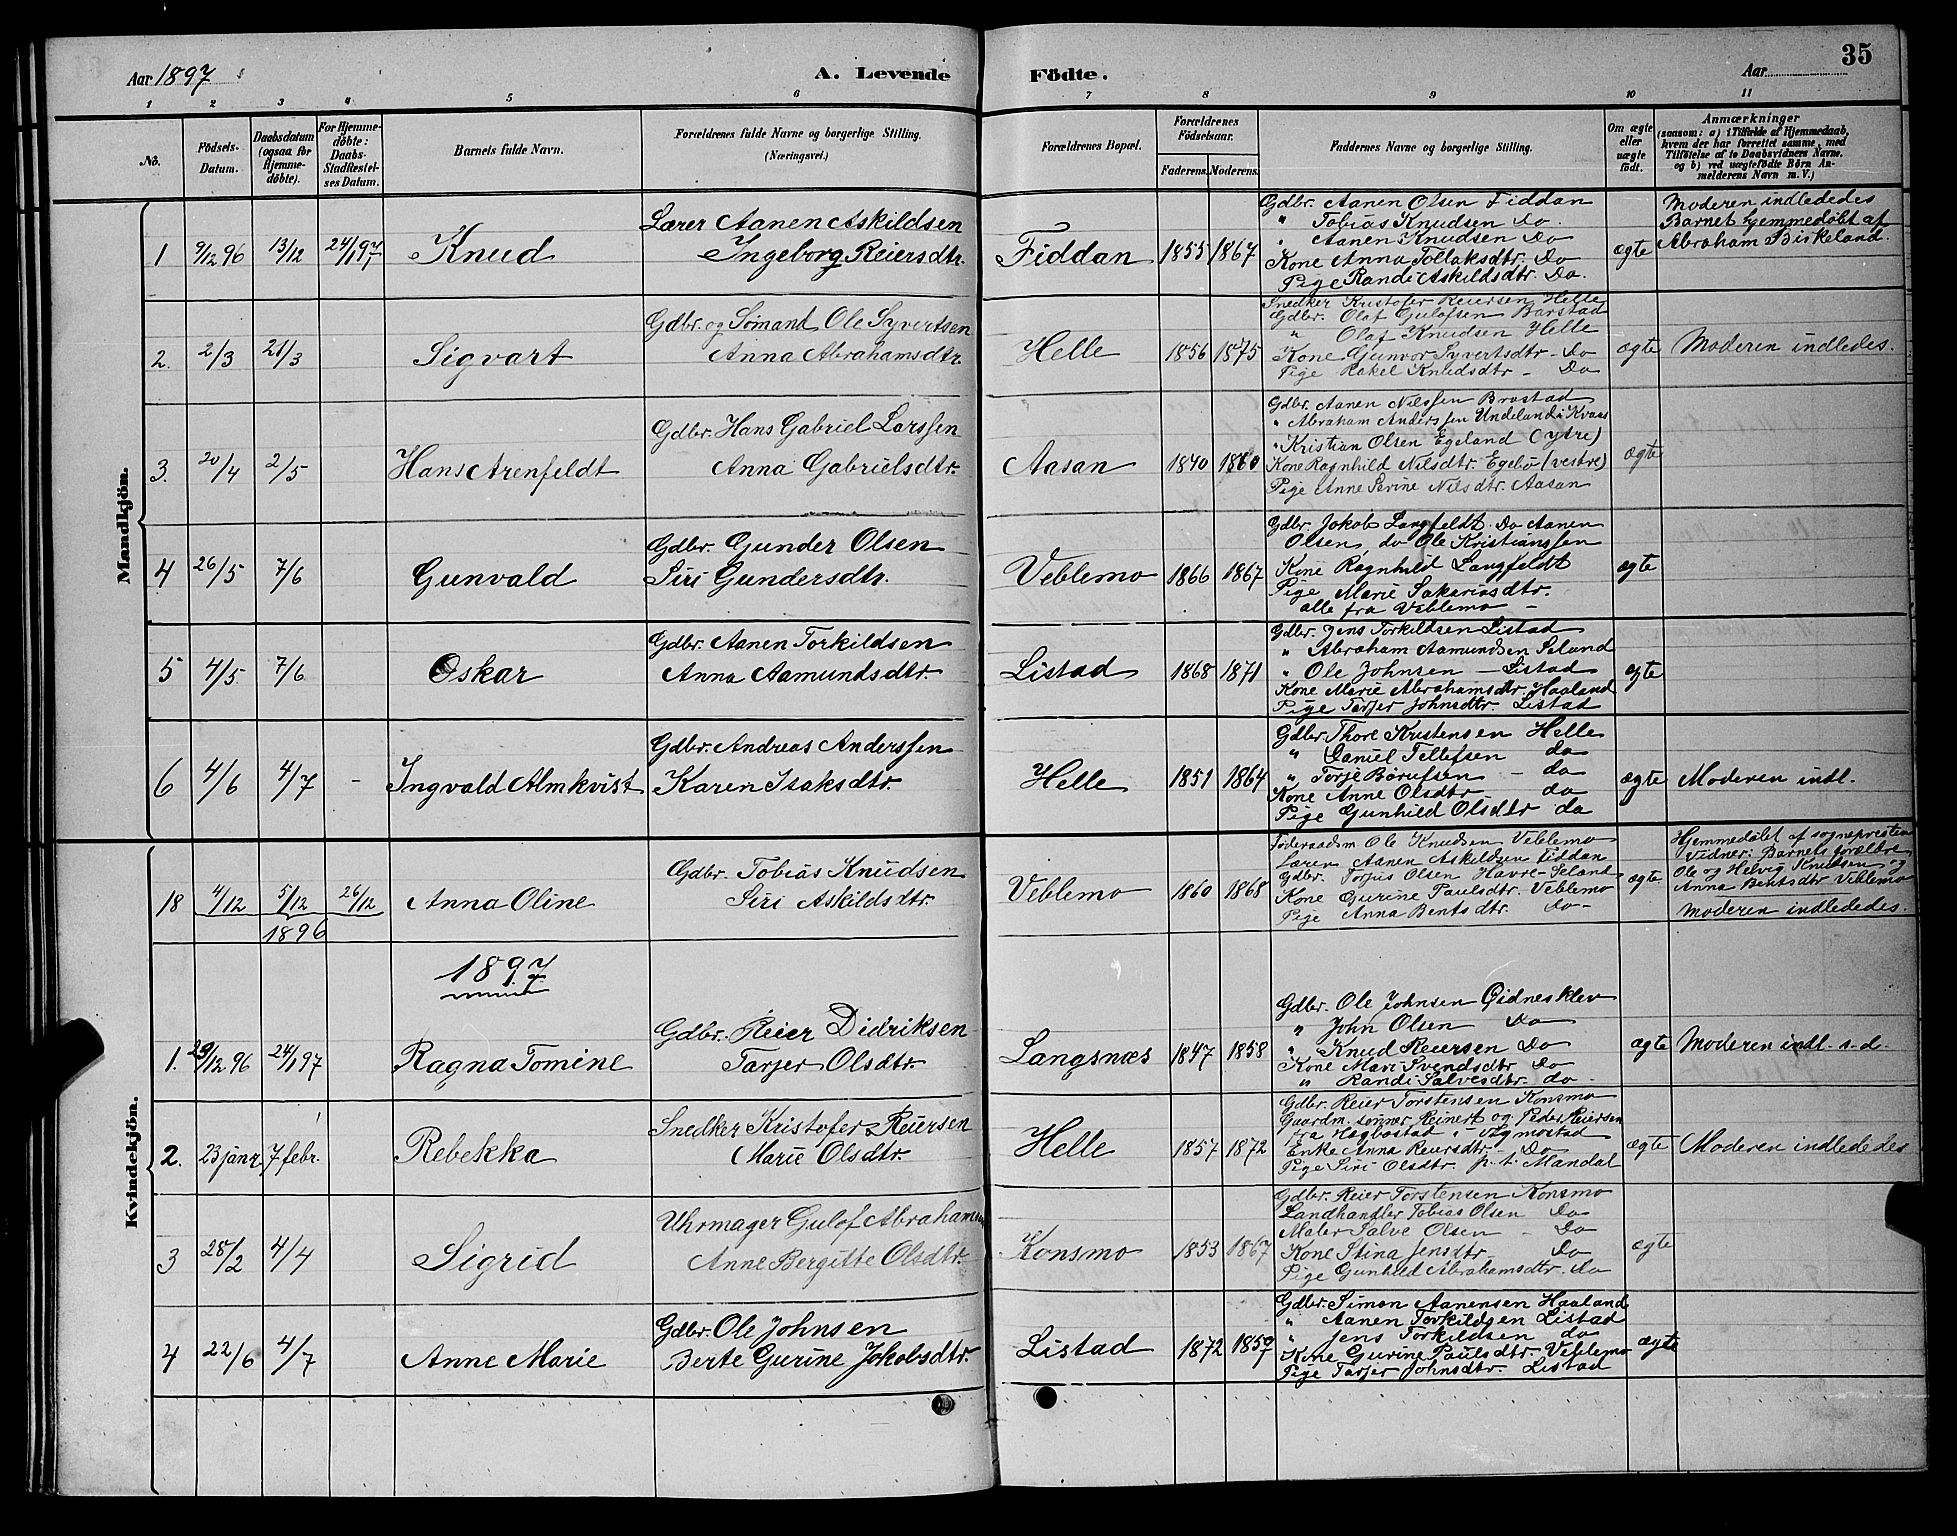 Aar 1897
A. Levende Födte.
Aar
35
1 2 3 4 5 6 7 8 9 10 11
No.
Födsels-
Datum.
Daabsdatum
(ogsaa for
Hjemme-
döbte).
For Hjemme-
döbte:
Daabs-
Stadfæstel-
ses Datum.
Barnets fulde Navn.
Forældrenes fulde Navne og borgerlige Stilling.
(Næringsvei.)
Forældrenes Bopæl.
Forældrenes
Födselsaar.
Faderens. Moderens.
Faddernes Navne og borgerlige Stilling.
Om ægte
eller
uægte
födt.
Anmærkninger
(saasom: a) i Tilfælde af Hjemmedaab,
hvem der har forrettet samme, med
Tilföielse af to Daabsvidners Navne,
og b) ved uægtefödte Börn An-
melderens Navn m. V.)
Mandkjön.
1 9/12 96 13/12 24/1 97 Knud
Lærer Aanen Askildsen
Ingeborg Reiersdtr.
Fiddan 1855 1867
Gdbr. Aanen Olsen Fiddan
" Tobias Knudsen do.
" Aanen Knudsen do
Kone Anna Tollaksdtr. do
Pige Randi Askildsdtr. do.
ægte
Moderen indlededes
Barnet hjemmedøbt af
Abraham Birkeland.
2. 2/3 21/3 Sigvart
Gdbr. og Sømand Ole Syvertsen
Anna Abrahamsdtr.
Helle 1856 1875
Snedker Kristofer Reiersen Helle
Gdbr. Olaf Gulofsen Barstad
" Olaf Knudsen Helle
Kone Gunvor Syvertsdtr - do
Pige Rakel Knudsdtr - do
ægte
Moderen indledes.
3. 20/4 2/5 Hans Arenfeldt
Gdbr. Hans Gabriel Larssen
Anna Gabrielsdtr.
Aasan 1840 1860
Gdbr. Aanen Nilssen Brostad
" Abraham Anderssen Undeland i Kvaas
" Kristian Olsen Egeland (ytre)
Kone Ragnhild Nilsdtr. Egebø (vestre)
Pige Anne Serine Nilsdtr. Aasan
ægte
4 26/5 7/6 Gunvald
Gdbr. Gunder Olsen
Siri Gundersdtr.
Veblemo 1866 1867
Gdbr. Jakob Langfeldt. do Aanen
Olsen, do Ole Kristianssen
Kone Ragnhild Langfeldt
Pige Marie Sakariasdtr.
alle fra Veblemo -
ægte
5 4/5 7/6 Oskar
Gdbr. Aanen Torkildsen
Anna Aamundsdtr.
Listad 1868 1871
Gdbr. Jens Torkildsen Listad
" Abraham Aamundsen Seland
" Ole Johnsen - Listad
Kone Marie Abrahamsdtr. Haaland
Pige Tarjer Johnsdtr. Listad
ægte
6 4/6 4/7 - Ingvald Almkvist
Gdbr. Andreas Anderssen
Karen Isaksdtr.
Helle 1851 1864
Gdbr. Thore Kristensen Helle
" Daniel Tellefsen do
" Torje Børufsen - do
Kone Anne Olsdtr - do
Pige Gunhild Olsdtr do
ægte
Moderen indl.
Kvindekjön.
18 4/12 5/12 26/12 Anna Oline
1896
Gdbr. Tobias Knudsen
Siri Askildsdtr.
Veblemo 1860 1868
Føderaadsm Ole Knudsen Veblemo
Læreren Aanen Askildsen Fiddan
Gdbr. Torjus Olsen Havre-Seland
Kone Gurine Paulsdtr. Veblemo
Pige Anna Bentsdtr. do-
ægte
Hjemmedøbt af sognepresten
Vidner: Barnets forældre
Ole og Helvig Knudsen og
Anna Bentsdtr Veblemo
Moderen indlededes.
1897
1. 29/12 96 24/1 97 Ragna Tomine
Gdbr. Reier Didriksen
Tarjer Olsdtr.
Langsnæs 1847 1858
Gdbr. Ole Johnsen Eidnesklev
" John Olsen do
" Knud Reiersen do
Kone Mari Svendsdtr do
" Randi Salvesdtr. do
ægte
Moderen indl. s.d.
2. 23 janr. 7 febr. Rebekka
Snedker Kristofer Reiersen
Marie Olsdtr.
Helle 1857 1872
Gdbr. Reier Torstensen Konsmo
Gaardm. sønner Reinert og Peder Reiersen
fra Hægbostad i Vigmostad
Enke Anna Reiersdtr - do
Pige Siri Olsdtr. p. t. Mandal
ægte
Moderen indlededes
3 28/2 4/4 Sigrid
Uhrmager Gulof Abrahamsen
Anne Bergitte Olsdtr.
Konsmo 1853 1867
Gdbr. Reier Torstensen Konsmo
Landhandler Tobias Olsen do
Maler Salve Olsen - do
Kone Stina Jensdtr - do
Pige Gunhild Abrahamsdtr. do
ægte
4 22/6 4/7 Anne Marie
Gdbr. Ole Johnsen
Berte Gurine Jakobsdtr.
Listad 1872 1859
Gdbr. Simon Aanensen Haaland
" Aanen Torkildsen Listad
" Jens Torkildsen do
Kone Gurine Paulsdtr. Veblemo
Pige Tarjer Johnsdtr. Listad
ægte